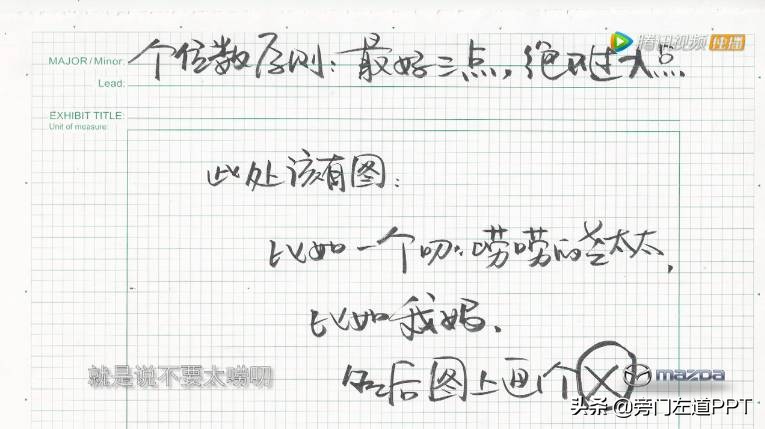 腾讯视频 独播
MAJOR / Minor:
个位数原则:最好三点,绝不过六点
Lead:
EXHIBIT TITLE:
Unit of measure:
此处该有图:
比如一个叨々唠唠的老太太,
比如我妈、
然后图上画个 X
就是说不要太唠叨
mazda
头条 @旁门左道PPT